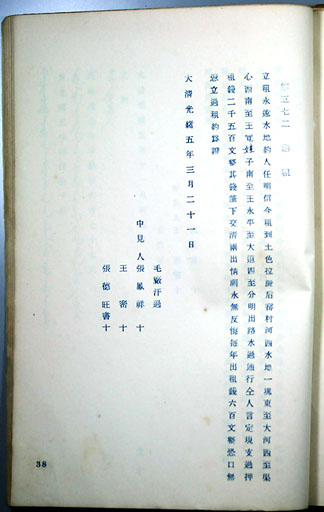 第五七二
立租永遠水地約人任明信今租到土色拉 后窑村河西水地一塊東至大河西至渠
心西南至王 娃子南至王永平至大道四至分明出路水過通行仝人言定現支過押
租錢二千五百文整其錢筆下交清兩出情願永無反悔每年出租錢六百文整恐口無
憑立過租約為證
大清光緒五年三月二十一日
毛 汗過
中見人張鳳祥十
王 十
張德旺書十
38